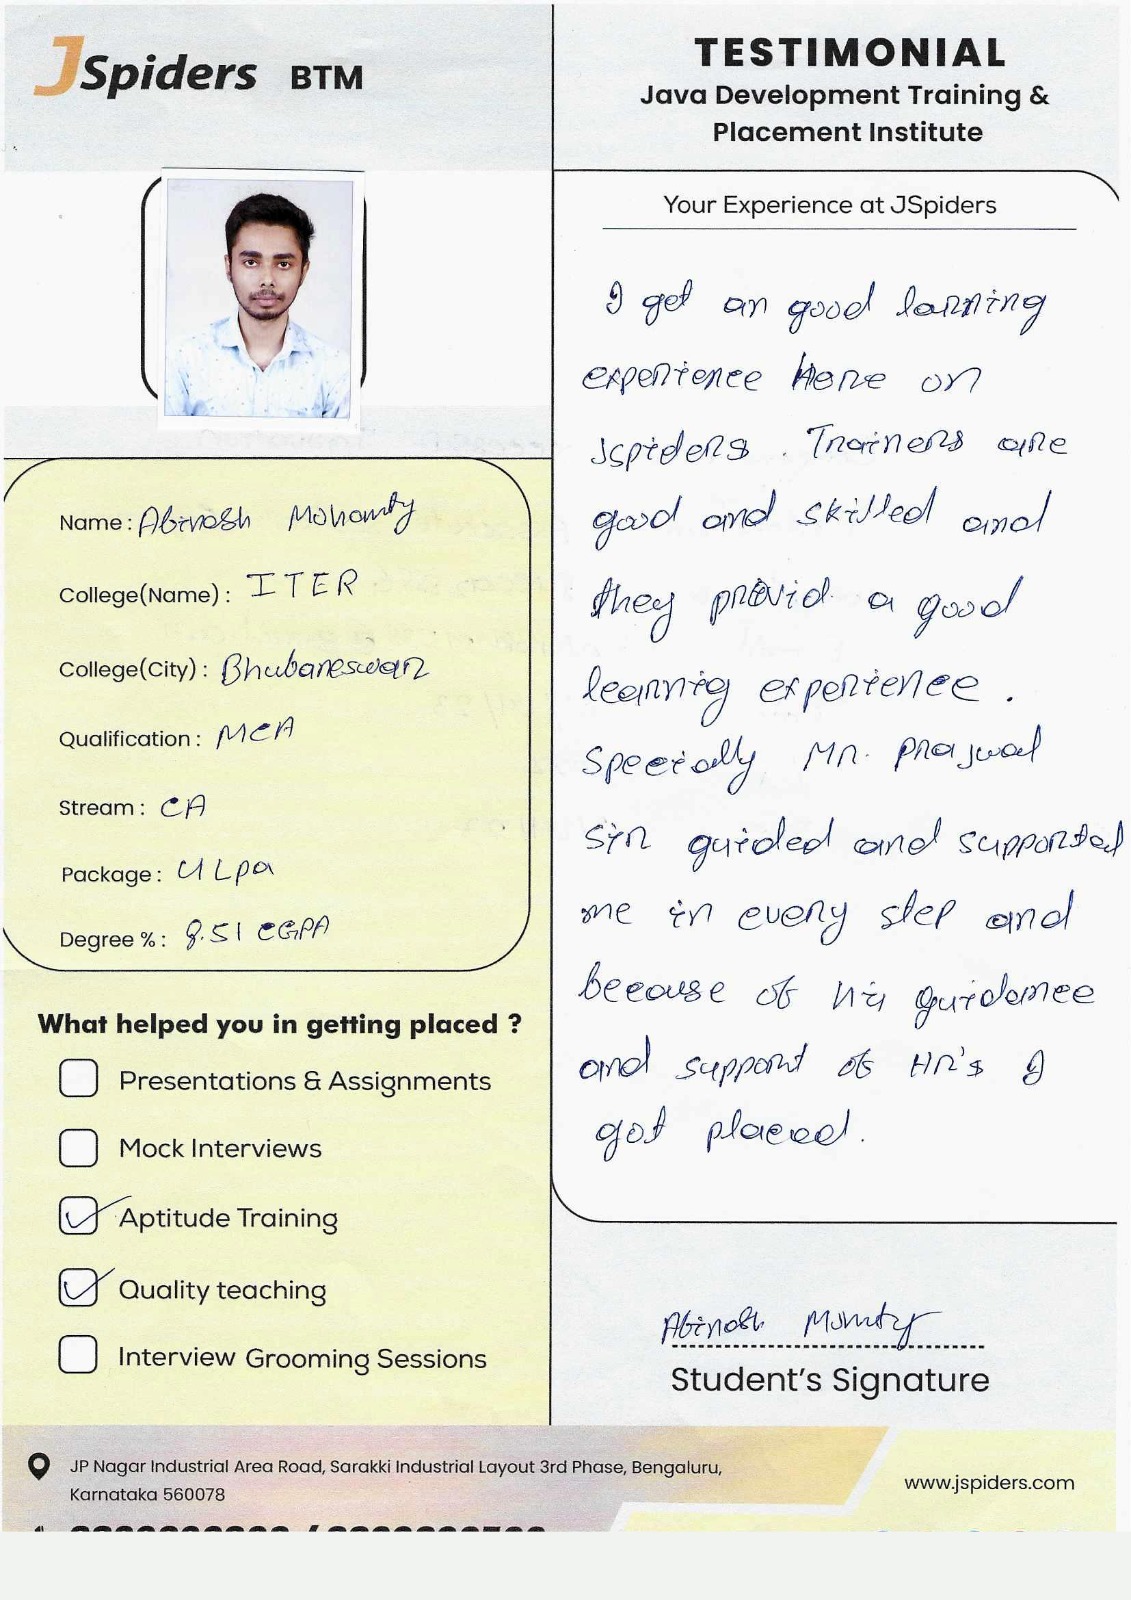 JSpiders BTM
TESTIMONIAL
Java Development Training &
Placement Institute
Name : Abinash Mohanty
College(Name) : ITER
College(City) : Bhubaneswar
Qualification : MCA
Stream : CA
Package : 4 Lpa
Degree % : 8.51 CGPA
What helped you in getting placed ?
Presentations & Assignments
Mock Interviews
Aptitude Training
Quality teaching
Interview Grooming Sessions
Your Experience at JSpiders
I get an good larning
experience Here on
Jspiders . Trainers are
good and skilled and
they provid a good
learning experience .
Specially Mr. Prajwal
sir guided and supported
me in every step and
because of his guidance
and support of HR's I
got placed.
Abinash Mohanty
Student's Signature
JP Nagar Industrial Area Road, Sarakki Industrial Layout 3rd Phase, Bengaluru,
Karnataka 560078
www.jspiders.com